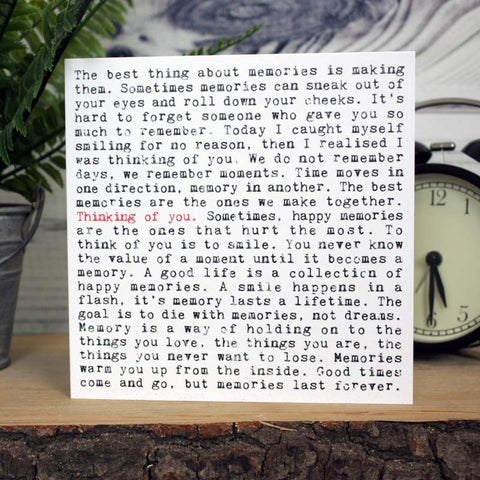 The best thing about memories is making
them. Sometimes memories can sneak out of
your eyes and roll down your cheeks. It's
hard to forget someone who gave you so
much to remember. Today I caught myself
smiling for no reason, then I realised I
was thinking of you. We do not remember
days, we remember moments. Time moves in
one direction, memory in another. The best
memories are the ones we make together.
Thinking of you. Sometimes, happy memories
are the ones that hurt the most. To
think of you is to smile. You never know
the value of a moment until it becomes a
memory. A good life is a collection of
happy memories. A smile happens in a
flash, it's memory lasts a lifetime. The
goal is to die with memories, not dreams.
Memory is a way of holding on to the
things you love, the things you are, the
things you never want to lose. Memories
warm you up from the inside. Good times
come and go, but memories last forever.
12
1
2
3
4
5
6